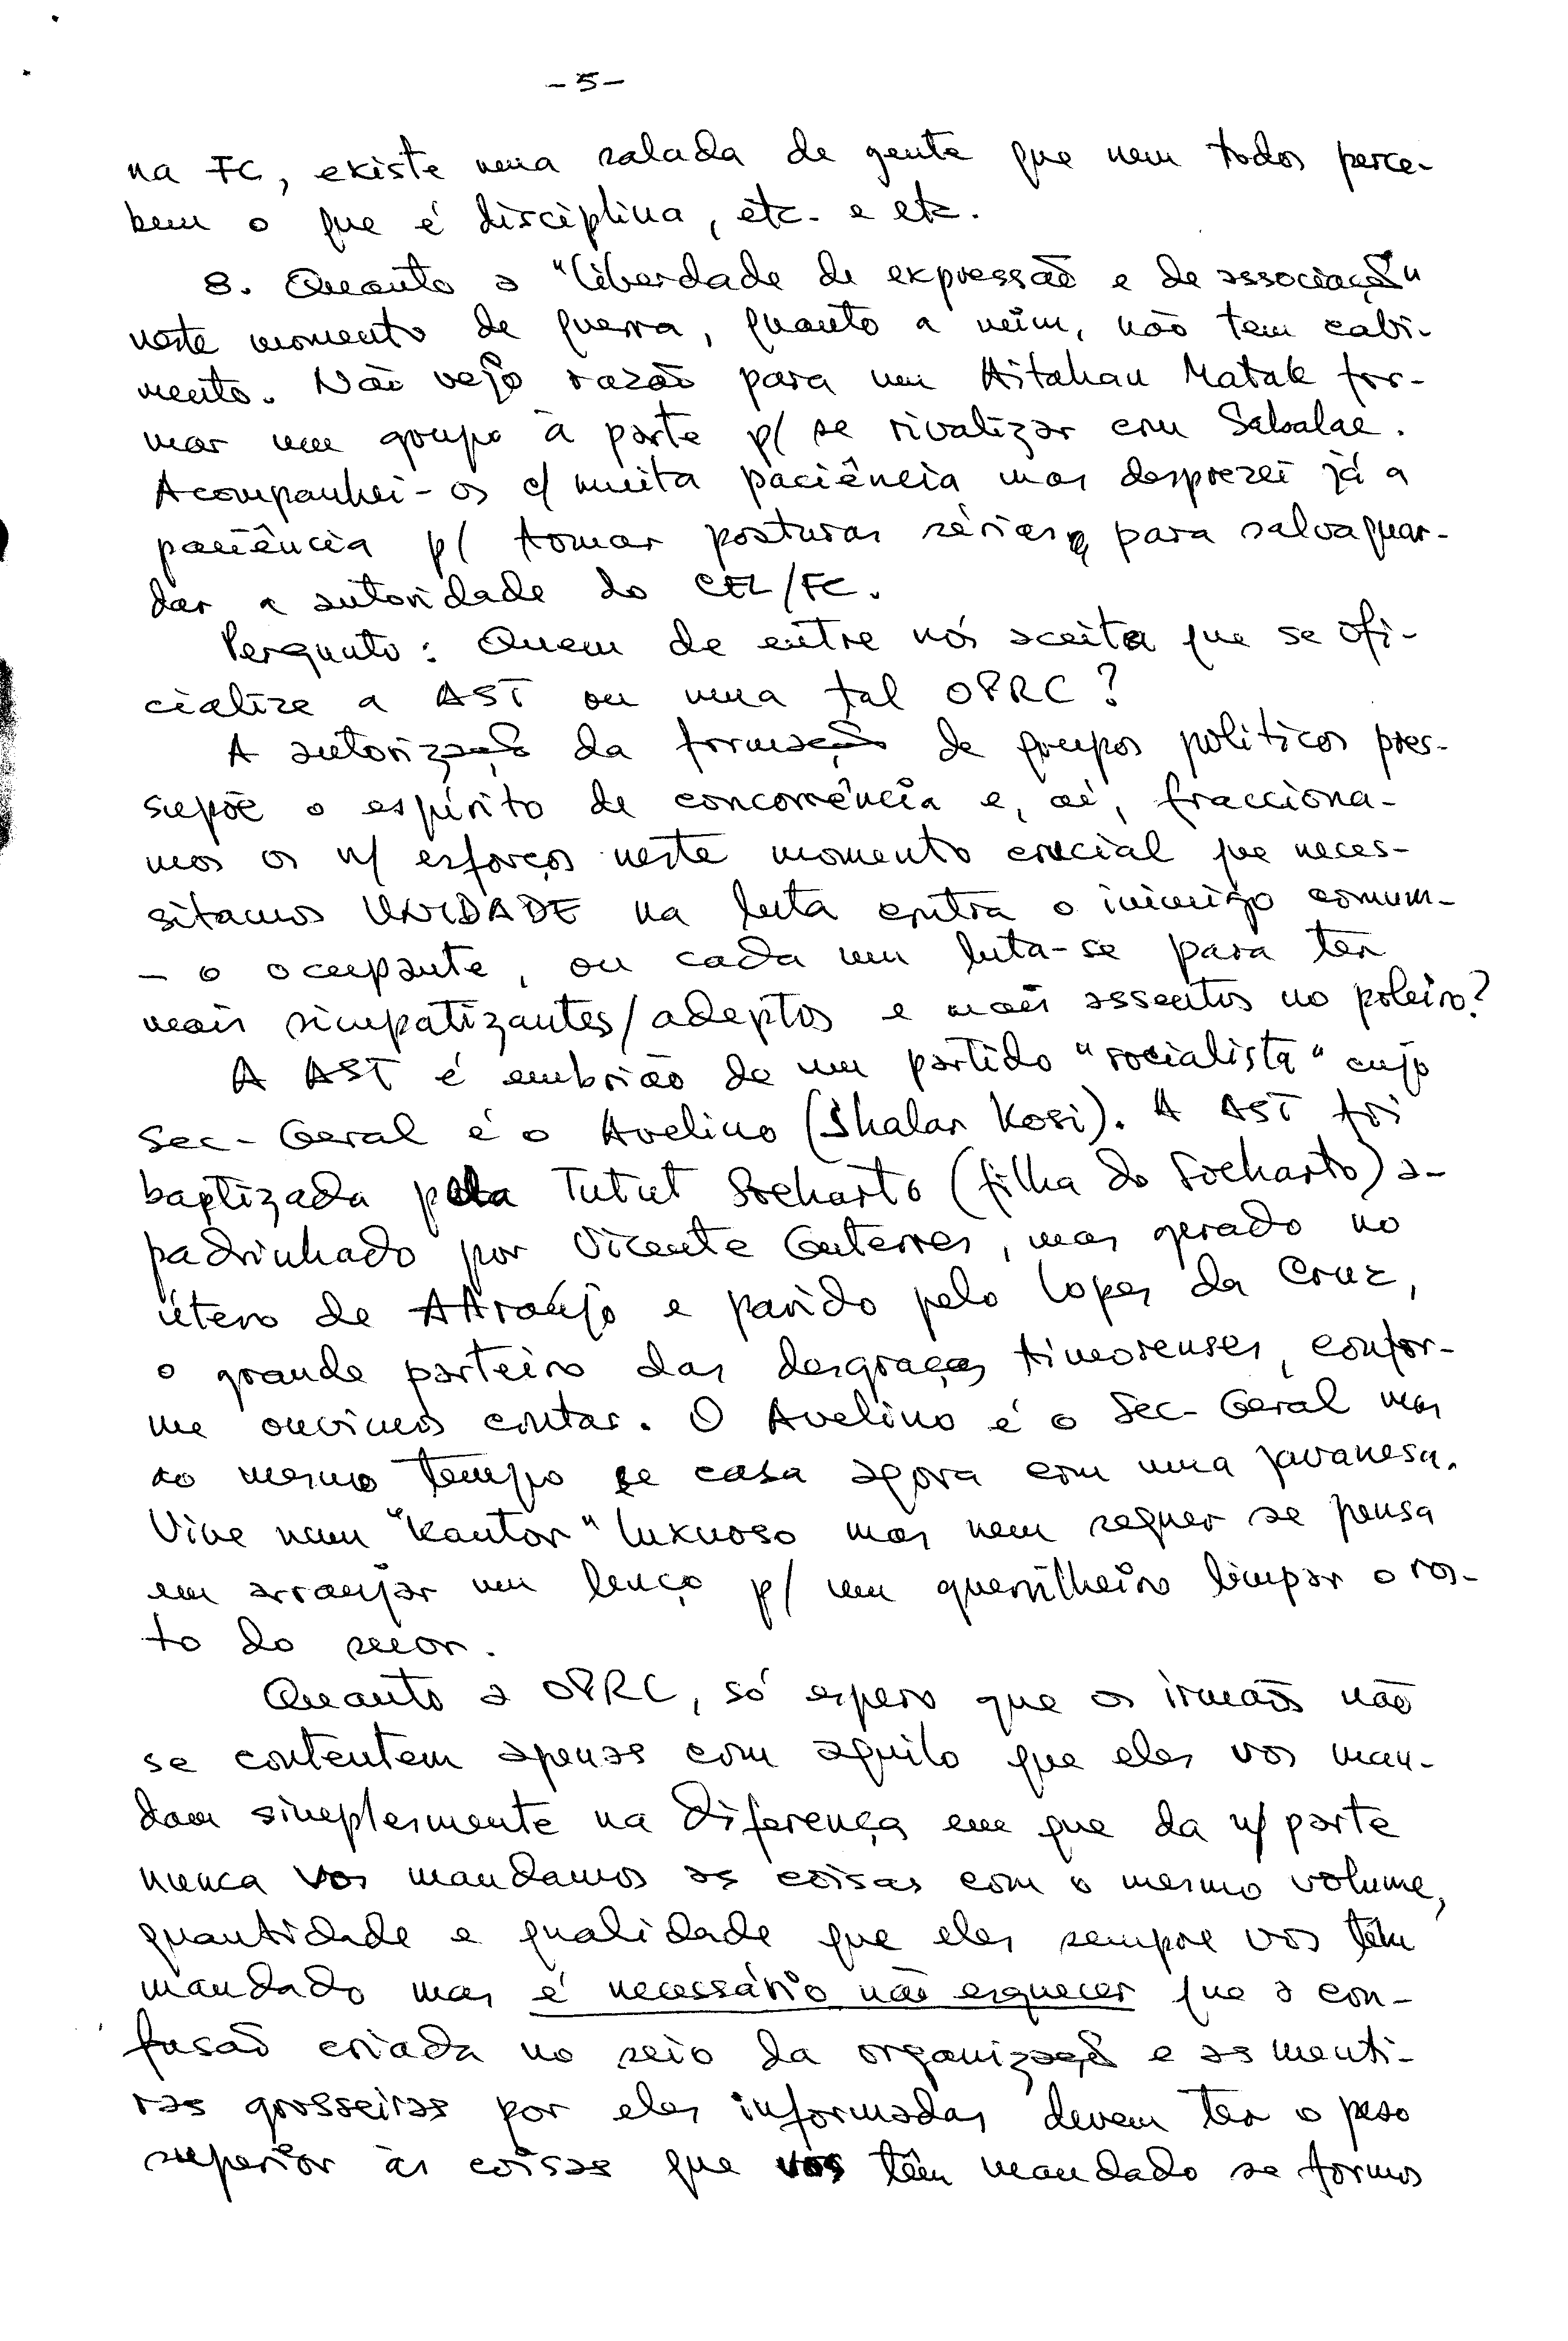 -5-
na FC, existe uma salada de gente que nem todos perce-
bem o que é disciplina, etc. e etc.
8. Quanto a "liberdade de expressão e de associação"
neste momento de guerra, quanto a mim, não tem cabi-
mento. Não vejo razão para um Aitahan Matak for-
mar um grupo à parte p/ se rivalizar com Sabalae.
Acompanhei-os c/ muita paciência mas desprezei já a
paciência p/ tomar posturas sérias para salvaguar-
dar a autoridade do CEL/FC.
Pergunto: Quem de entre nós aceita que se ofi-
cialize a AST ou uma tal OPRC?
A autorização da formação de grupos políticos pres-
supõe o espírito de concorrência e, aí, fracciona-
mos os n/ esforços neste momento crucial que neces-
sitamos UNIDADE na luta contra o inimigo comum-
- o ocupante, ou cada um luta-se para ter
mais simpatizantes/adeptos e mais assentos no poleiro?
A AST é embrião de um partido "socialista" cujo
Sec-Geral é o Avelino (Shalar Kosi). A AST foi
baptizada pela Tutut Soeharto (filha do Soeharto) a-
padrinhado por Vicente Guterres, mas gerado no
útero de AAraújo e parido pelo Lopes da Cruz,
o grande parteiro das desgraças timorenses, confor-
me ouvimos contar. O Avelino é o Sec-Geral mas
ao mesmo tempo se casa agora com uma javanesa.
Vive num "kantor" luxuoso mas nem sequer se pensa
em arranjar um lenço p/ um guerrilheiro limpar o ros-
to do suor.
Quanto a OPRC, só espero que os irmãos não
se contentem apenas com aquilo que eles vos man-
dam simplesmente na diferença em que da n/ parte
nunca vos mandamos as coisas com o mesmo volume,
quantidade e qualidade que eles sempre vos têm
mandado mas é necessário não esquecer que a con-
fusão criada no seio da organização e as menti-
ras grosseiras por eles informadas devem ter o peso
superior às coisas que vos têm mandado se formos